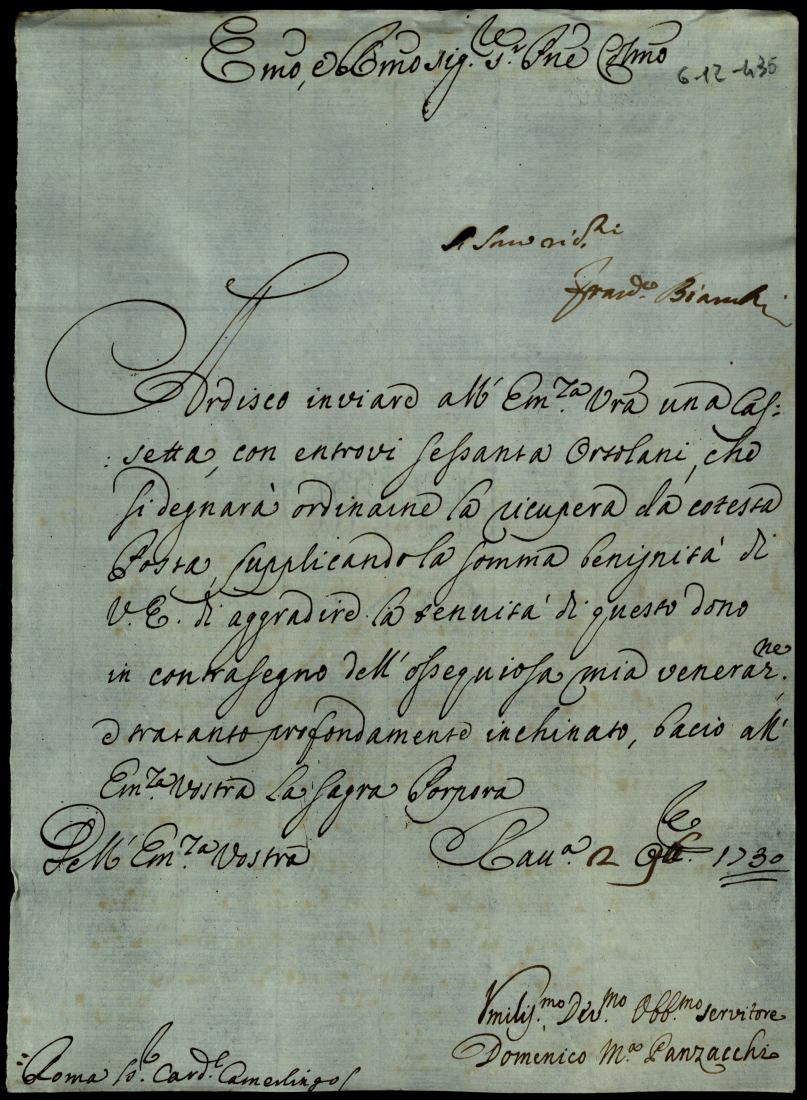 Emo, e Rmo Sig.re S.r Pne Colmo
6-12-436
Franc.o Bianchi
Ardisco inviare all' Em.za Vrã una Cas:
:setta, con entrovi sessanta Ortolani, che
si degnarà ordinarne la ricupera da cotesta
Posta, supplicando la somma benignità di
V. E. di aggradire la tenuità di questo dono
in contrasegno dell' ossequiosa mia veneraz.ne
e tratanto profondamente inchinato, bacio all'
Em.za Vostra La Sagra Porpora
Dell' Em.za Vostra
Rau.a 2 1730
Vmiliss.mo Dev.mo Obb.mo Servitore
Domenico M.a Panzacchi
Roma S.r Card.l Camerlingo